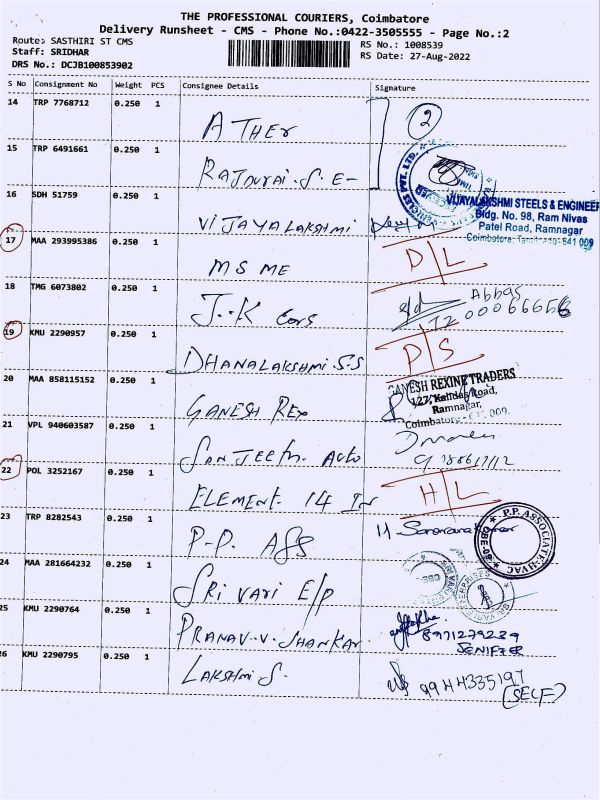 THE PROFESSIONAL COURIERS, Coimbatore
Delivery Runsheet - CMS - Phone No.:0422-3505555 - Page No.:2
Route: SASTHIRI ST CMS
RS No.: 1008539
Staff: SRIDHAR
RS Date: 27-Aug-2022
DRS No.: DCJB100853902
S No Consignment No Weight PCS Consignee Details Signature
14 TRP 7768712 0.250 1 ATHER 2
15 TRP 6491661 0.250 1 RAJDURAI.S.E-
16 SDH 51759 0.250 1 VIJAYALAKSHMI
VIJAYALAKSHMI STEELS & ENGINEER
Bldg. No. 98, Ram Nivas
Patel Road, Ramnagar
Coimbatore, Tamilnadu-641 009
17 MAA 293995386 0.250 1 MSME D/L
18 TMG 6073802 0.250 1 J.K Cors Abbas
7200066656
19 KMU 2290957 0.250 1 DHANALAKSHMI S.S D/S
20 MAA 858115152 0.250 1 GANESH REX
GANESH REXINE TRADERS
127, Kalidas Road,
Ramnagar,
Coimbatore - 641 009.
21 VPL 940603587 0.250 1 SANJEETH. Auto
22 POL 3252167 0.250 1 ELEMENT 14 IN H/L
23 TRP 8282543 0.250 1 P.P. ASS
P.P. ASSOCIATE-HVAC
24 MAA 281664232 0.250 1 SRI VARI E/P
SRI VARI ENTERPRISES
25 KMU 2290764 0.250 1 PRANAV.V.SHANKAR
8971279239
JENIFER
26 KMU 2290795 0.250 1 LAKSHMI S. 9944335197
(SELF)